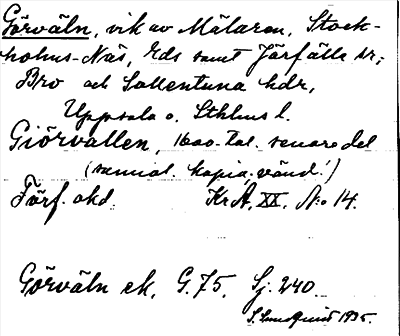 Görväln, vik av Mälaren, Stock-
holms-Näs, Eds samt Järfälla sn;
Bro och Sollentuna hdr,
Uppsala o. Sthlms l.
Giörvallen, 1600-tal. senare del
(samtal. kopia, vänd!)
Förf. okd. KrA, XX, No 14.
Görväln ek. G.75, Sj. 240
S. Lundquist 1935.